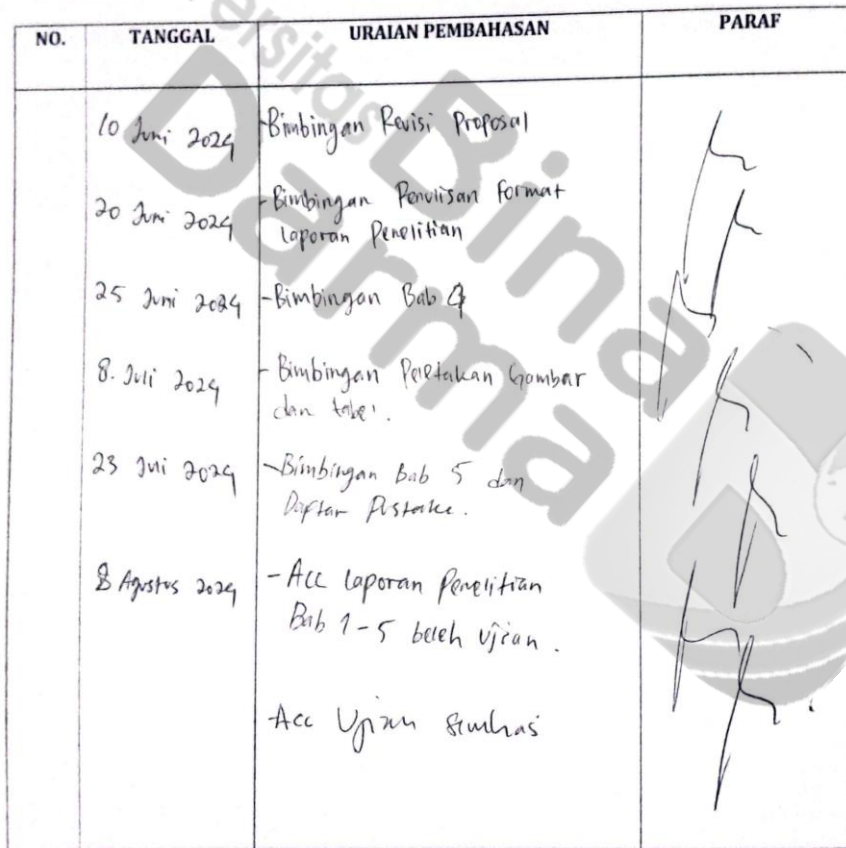 Universitas Bina Darma
NO. TANGGAL URAIAN PEMBAHASAN PARAF
10 Juni 2024 -Bimbingan Revisi Proposal
20 Juni 2024 -Bimbingan Penulisan Format
Laporan Penelitian
25 Juni 2024 -Bimbingan Bab 4
8. Juli 2024 -Bimbingan Peletakan Gambar
dan tabel.
23 Juli 2024 -Bimbingan Bab 5 dan
Daftar Pustaka.
8 Agustus 2024 -Acc Laporan Penelitian
Bab 1-5 boleh ujian.
-Acc Ujian Semhas